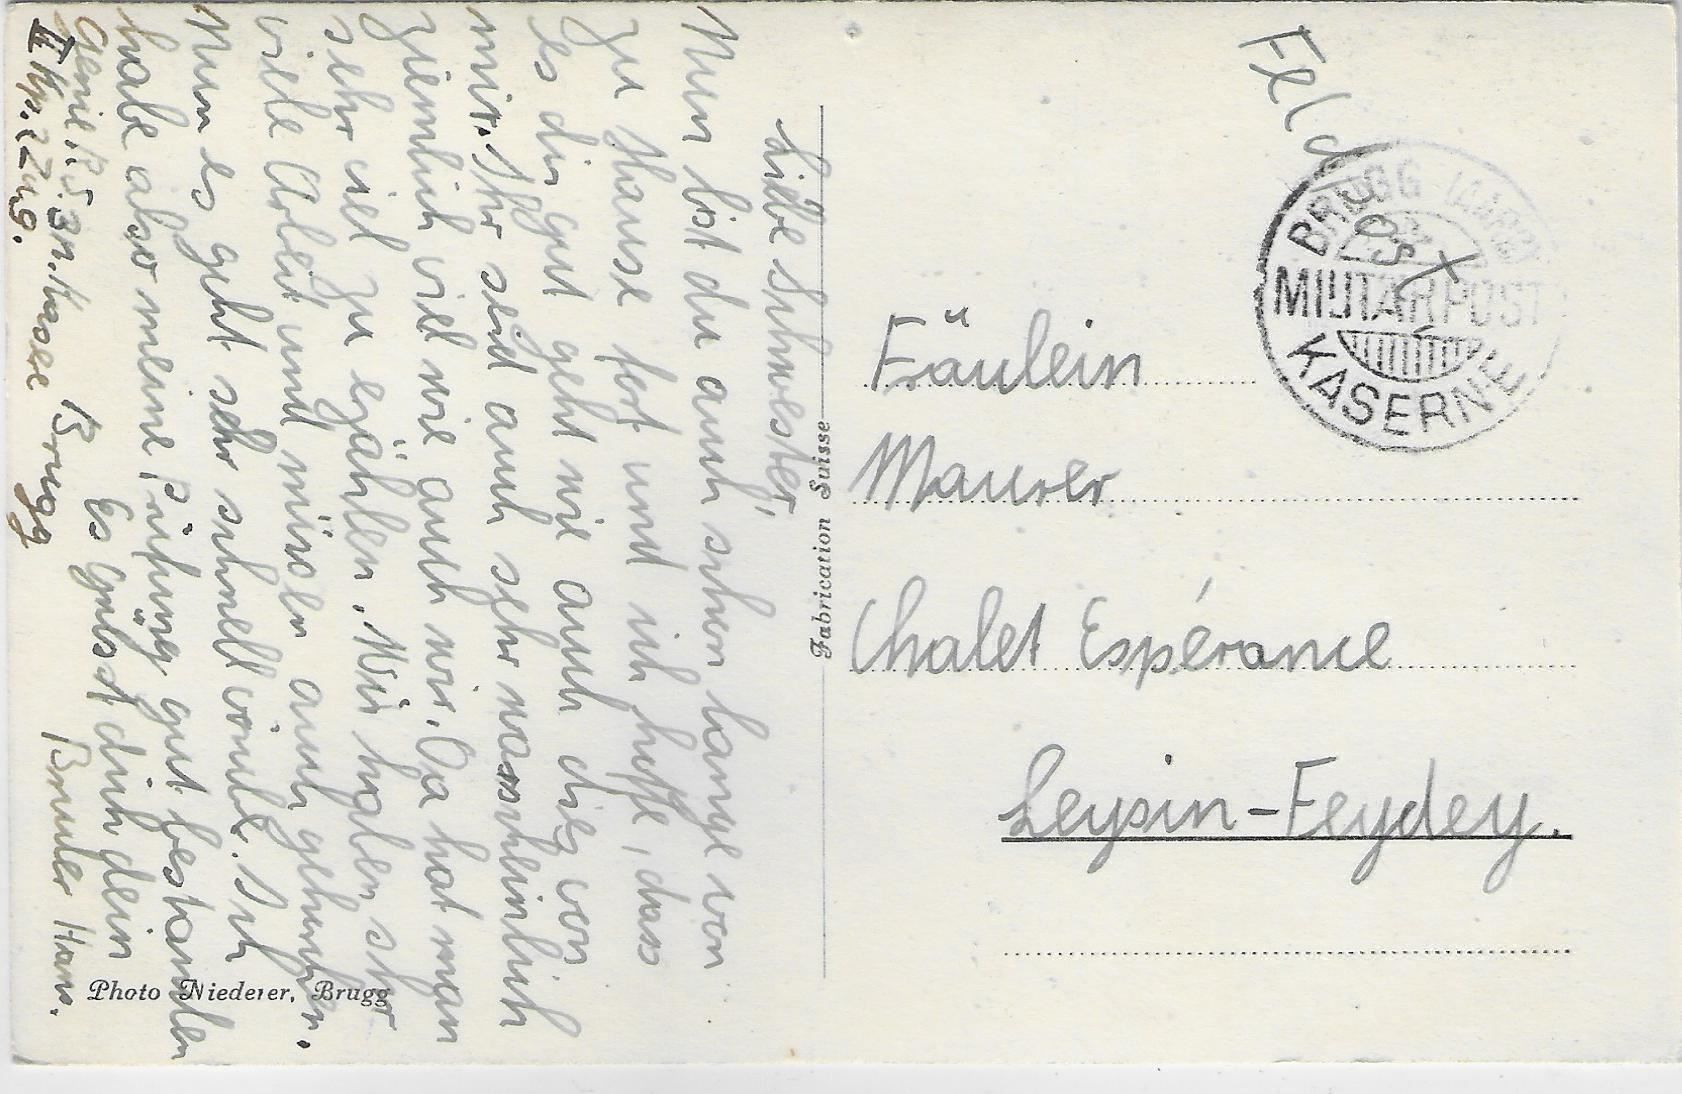 Liebe Schwester,
Nun bist du auch schon lange von
zu Hause fort und ich hoffe, dass
es dir gut geht wie auch dies von
mir. Ihr seid auch sehr warscheinlich
ziemlich viel wie auch wir. Da hat man
sehr viel zu erzählen. Wir haben sehr
viele Arbeit und müssen auch gehorchen.
Nun es geht sehr schnell vorüber. Ich
habe also meine Prüfung gut bestanden
Es grüsst dich dein
Bruder Hans.
Genie R.S. 3n. Kaserne Brugg
II Kp. 2 Zug.
Photo Niederer, Brugg
Fabrication Suisse
Feldpost
BRUGG (AARG.)
MILITÄRPOST
KASERNE
Fäulein
Maurer
Chalet Espérance
Leysin-Feydey.